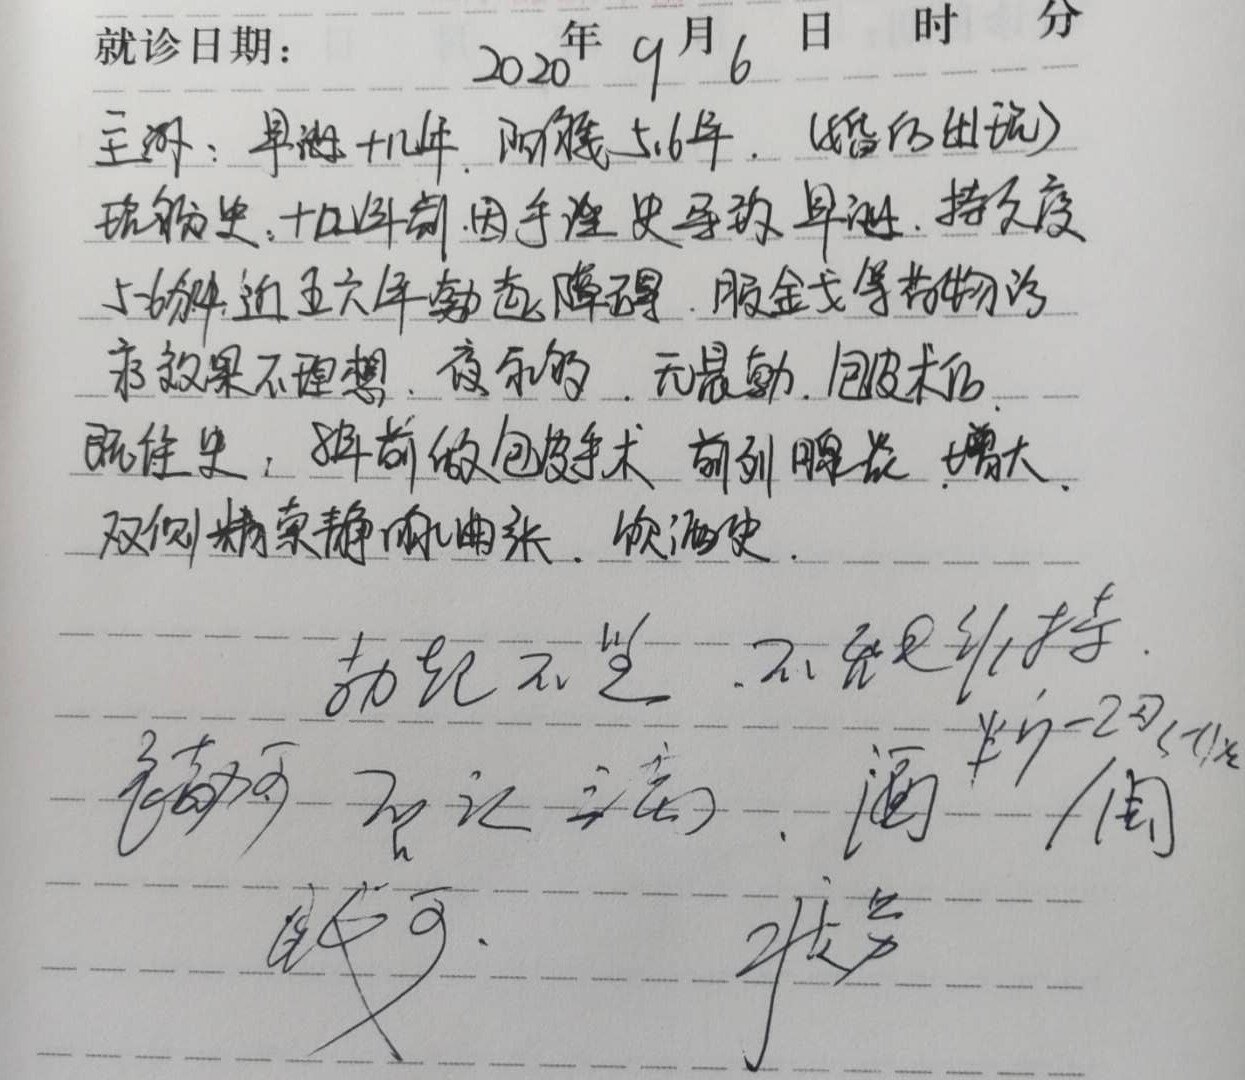 就诊日期: 2020年9月6日 时 分
主诉: 早泄十几年. 阳痿5.6年. (婚后出现)
现病史: 十几年前因手淫史导致早泄. 持久度
5-6分钟. 近五六年勃起障碍. 服金戈等药物治
疗效果不理想. 夜尿多. 无晨勃. 包皮术后.
既往史: 年前做包皮手术 前列腺炎. 增大.
双侧精索静脉曲张. 饮酒史.
勃起不坚. 不能维持.
酒 半斤-2两
/周
可.